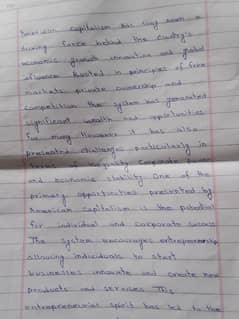 American capitalism has long been a
driving force behind the Country's
economic growth innovation and global
influence. Rooted in principles of free
markets, private ownership and
competition the system has generated
significant wealth and opportunities
for many However it has also
presented challenges particularly in
terms of inequality Corporate power
and economic stability. One of the
primary opportunities presented by
American capitalism is the potential
for individual and corporate success
The system encourages entrepreneurship
allowing individuals to start
businesses innovate and create new
products and services This
entrepreneurial spirit has led to the